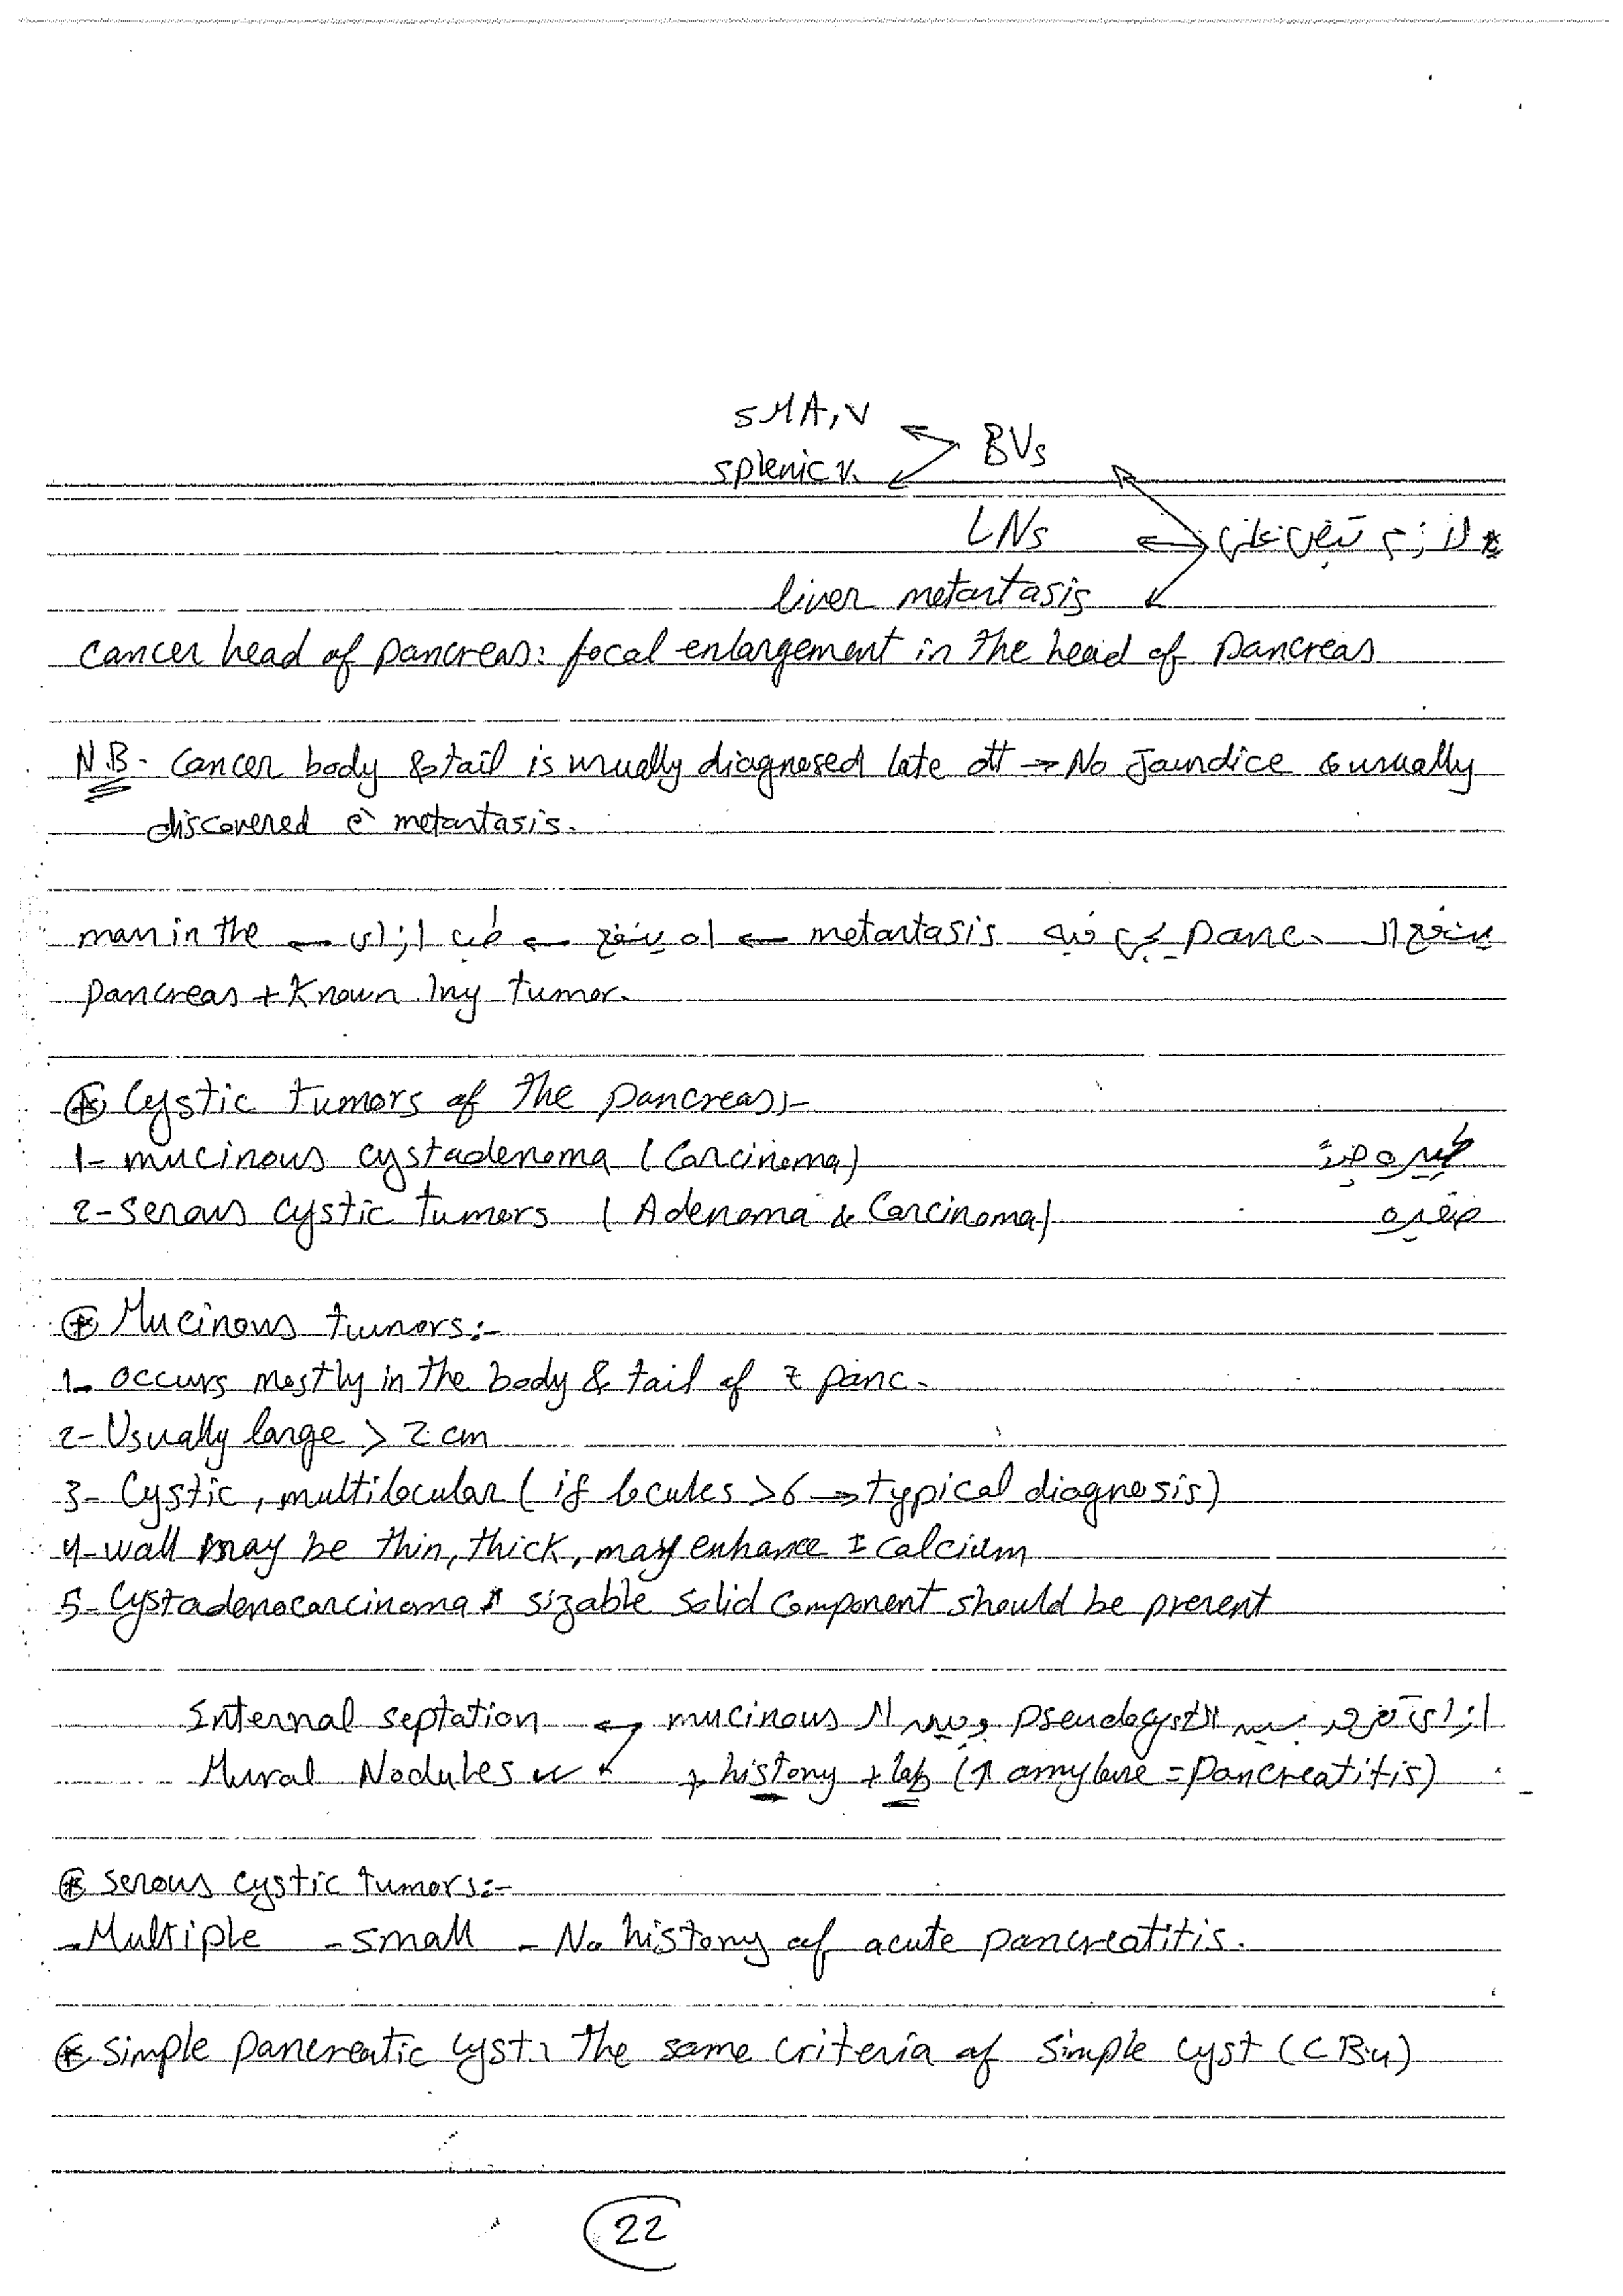 SMA, V
BVs
splenic v.
LNs
* لازم تبص على
liver metastasis
cancer head of pancreas: focal enlargement in the head of pancreas
N.B- Cancer body & tail is usually diagnosed late dtt → No Jaundice & usually
discovered c̄ metastasis.
ينفع ال panc. يجي فيه metastasis ← اه ينفع ← طب ازاى ← man in the
pancreas + Known 1ry tumor.
* Cystic tumors of the pancreas:-
1- mucinous cystadenoma (Carcinoma)
2- serous cystic tumors (Adenoma & Carcinoma)
* Mucinous tumors:-
1- occurs mostly in the body & tail of z panc.
2- Usually large > 2 cm
3- Cystic, multilocular (if locules >6 → typical diagnosis)
4- wall may be thin, thick, may enhance ± calcium
5- Cystadenocarcinoma sizable solid component should be present
ازاى تفرق بين ال pseudocyst وبين ال mucinous ← Internal septation
Mural Nodules
+ history + lab (↑ amylase = pancreatitis)
* serous cystic tumors:-
- Multiple - small - No history of acute pancreatitis.
* simple pancreatic cyst: the same criteria of simple cyst (CB4)
22